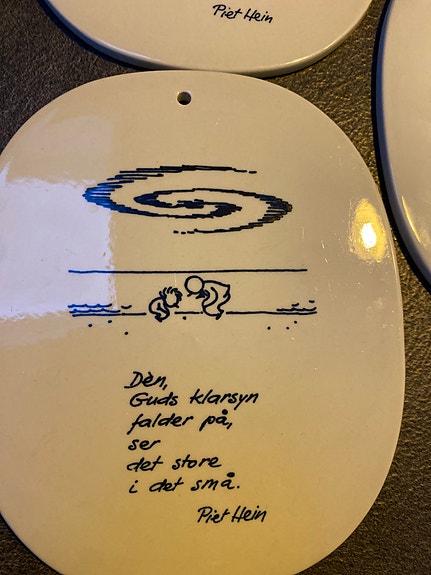 Piet Hein
Dèn,
Guds klarsyn
falder på,
ser
det store
i det små.
Piet Hein